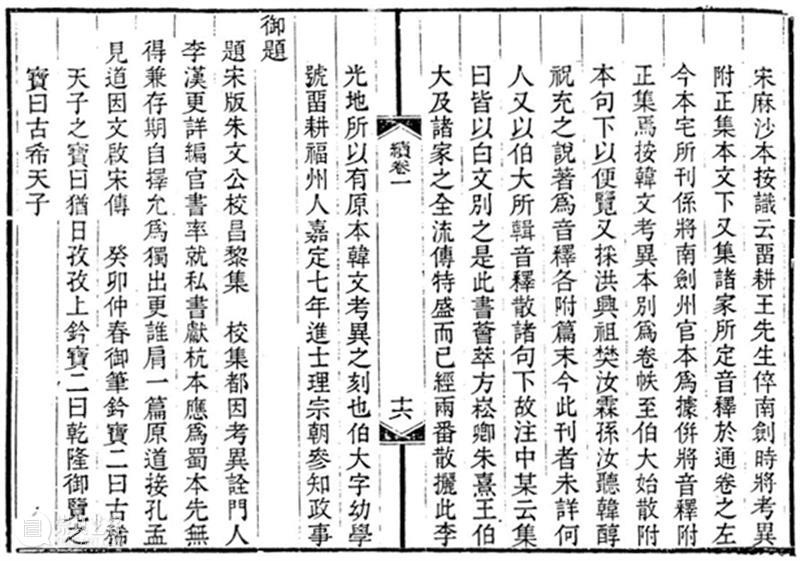 宋麻沙本按識云畱耕王先生倅南劍時將考異
附正集本文下又集諸家所定音釋於通卷之左
今本宅所刊係將南劍州官本爲據併將音釋附
正集焉按韓文考異本別爲卷帙至伯大始散附
本句下以便覽又採洪興祖樊汝霖孫汝聽韓醇
祝充之說著爲音釋各附篇末今此刊者未詳何
人又以伯大所輯音釋散諸句下故注中某云集
曰皆以白文別之是此書薈萃方崧卿朱熹王伯
大及諸家之全流傳特盛而已經兩番散攦此李
續卷一
十六
光地所以有原本韓文考異之刻也伯大字幼學
號畱耕福州人嘉定七年進士理宗朝參知政事
御題
題宋版朱文公校昌黎集 校集都因考異詮門人
李漢更詳編官書率就私書獻杭本應爲蜀本先無
得兼存期自擇允爲獨出更誰肩一篇原道接孔孟
見道因文啟宋傳 癸卯仲春御筆鈐寶二曰古稀
天子之寶曰猶日孜孜上鈐寶二曰乾隆御覽之
寶曰古希天子